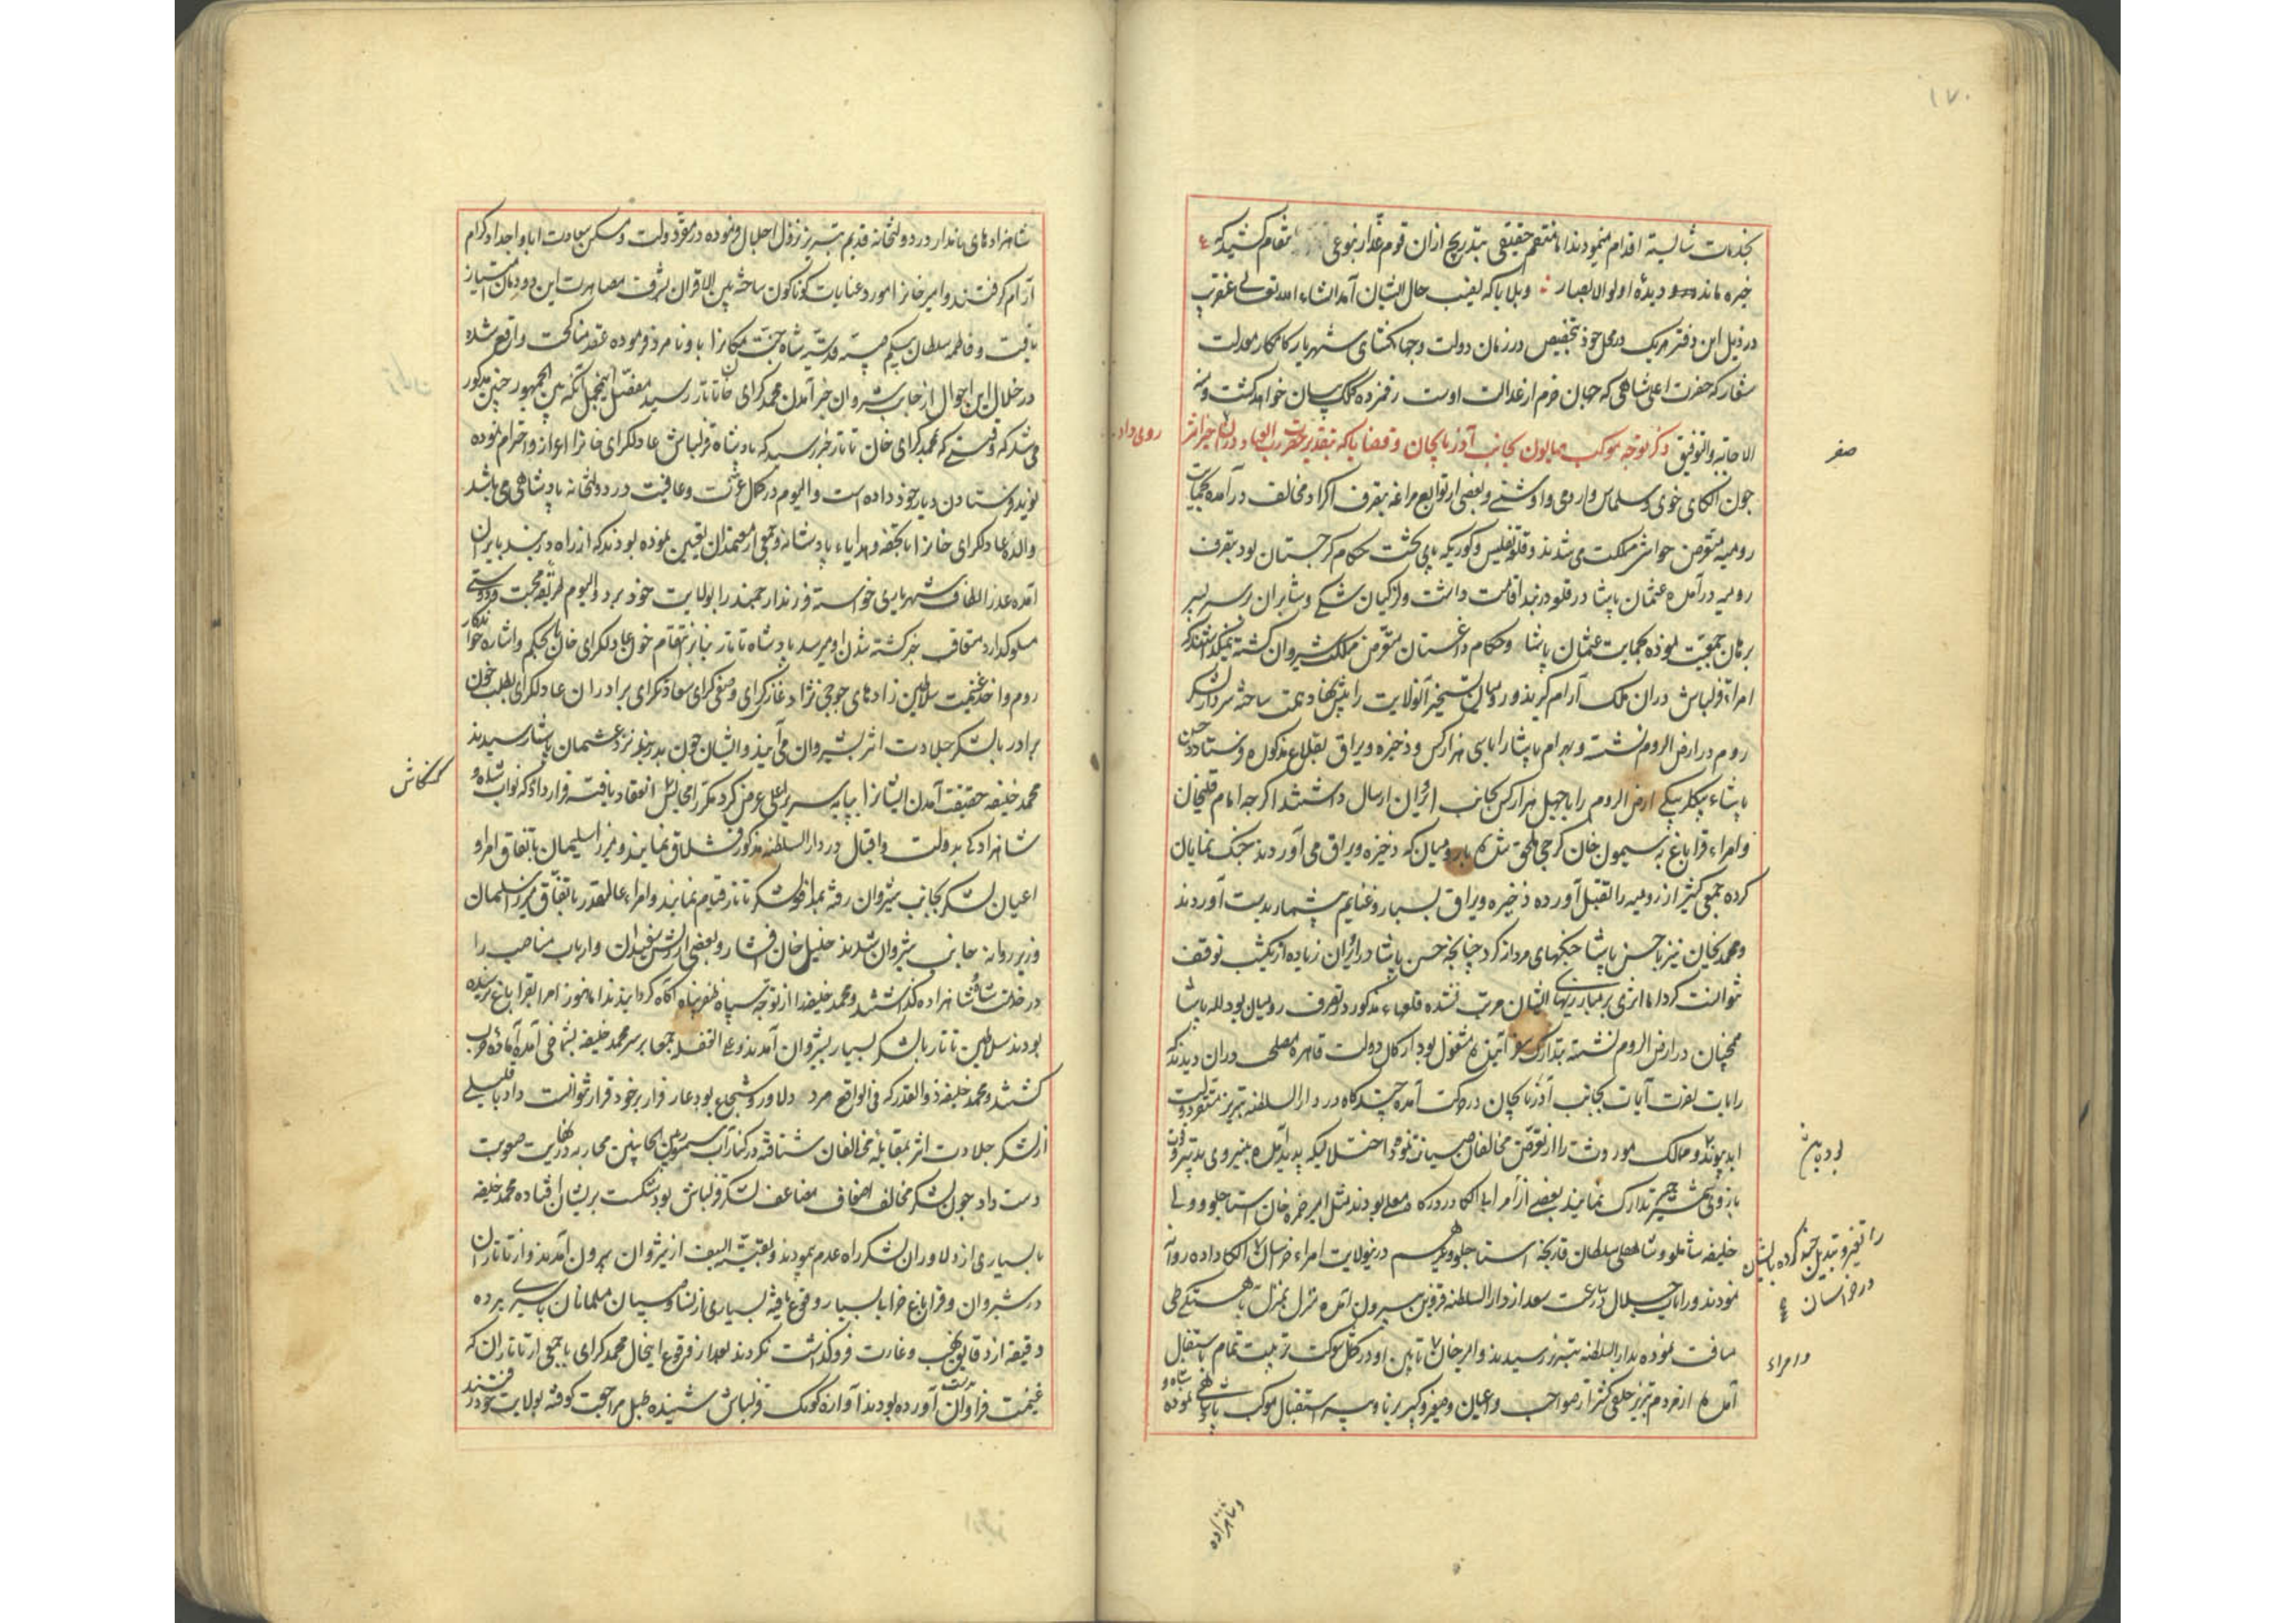 ۱۷۰
بخدمات شایسته اقدام مینمودند اما منتقم حقیقی بتدریج ازان قوم غدار بنوعی انتقام کشید که
خیره ماند درو دیدهٔ اولوالابصار وبلایا که نصیب حال ایشان آمد انشاء الله تعالی عنقریب
در ذیل این دفتر هریک در محل خود بتخصیص در زمان دولت وجهانکشای شهریار کامکار معدلت
شعار که حضرت اعلی شاهی که جهان خرم از عدالت اوست رقمزده کلک بیان خواهد کشت ومنه
الاعانه والتوفیق ذکر توجه موکب همایون بجانب آذربایجان وقضایا که بتقدیر حضرت رب العباد دران
روی داد
صفر
چون الکای خوی وسلماس وارومی واوشنی وبعضی از توابع مراغه بتصرف اکراد مخالف درآمده بحمایت
رومیه متعرض حواشی مملکت می شدند وقلعه تفلیس وکوری که پای تخت حکام کرجستان بود بتصرف
رومیه درآمده عثمان پاشا در قلعه دربند اقامت داشت ولزکیان شکی وشابران بر سر پسر
برهان جمعیت نموده بحمایت عثمان پاشا وحکام داغستان متعرض مملکت شیروان کشته نمیکذاشتند که
امراء قزلباش دران ملک آرام کیرند ورومیان تسخیر آنولایت را پیش نهاد همت ساخته سردار لشکر
روم در ارض الروم نشسته وبهرام پاشا را با سی هزار کس وذخیره ویراق بقلاع مذکوره فرستاد وحسن
پاشاء بیکلربیکی ارض الروم را با چهل هزار کس بجانب ایروان ارسال داشتند اکرچه امام قلیخان
وامراء قراباغ به سیمون خان کرجی ملحق شده با رومیان که ذخیره ویراق می آوردند جنک نمایان
کرده جمعی کثیر از رومیه را بقتل آورده ذخیره ویراق بسیار وغنایم بیشمار بدست آوردند
ومحمدیخان نیز با حسن پاشا جنکهای مردانه کرد چنانچه حسن پاشا در ایروان زیاده از یکشب توقف
نتوانست کرد اما اثری بر مبارزیهای ایشان مترتب نشده قلعهاء مذکور در تصرف رومیان بود لله پاشا
همچنان در ارض الروم نشسته بتدارک سفر آینده مشغول بود ارکان دولت قاهره مصلحت دران دیدند که
رایات نصرت آیات بجانب آذربایجان در حرکت آمده چندکاه در دارالسلطنه تبریز
ابد پیوند وممالک موروث را از تعرض مخالفان صیانت نموده اختلالی که پدید آمده به نیروی
بازوی شمشیر تدارک نمایند بعضی از امرا با الکا در درکاه معلی بودند مثل امیر حمزه خان استاجلو وولی
بودباش
خلیفه شاملو وشاهقلی سلطان قارنجه استاجلو وغیرهم در نیولایت امراء خراسان الکا داده روانه
را تغییر وتبدیل چند کرده بایشان
در خراسان
نمودند ورایات جلال در ساعت سعد از دارالسلطنه قزوین بیرون آمده منزل بمنزل باهستکی طی
مسافت نموده بدارالسلطنه تبریز رسیدند وامیرخان تا میان او در کمال شوکت وزینت تمام باستقبال
وامراء
آمده از مردم تبریز خلقی کثیر از صواحب واعیان وصغیر وکبیر برنا وپیر استقبال موکب پادشاهی نموده
وشاهزاده
شاهزادهای نامدار در دولتخانه قدیم تبریز نزول اجلال فرموده در مقر دولت ومسکن سعادت ابا واجداد کرام
آرام کرفتند وامیرخانرا مورد عنایات کوناکون ساخته بین الاقران بشرف مصاهرت این دودمان امتیاز
یافت وفاطمه سلطان بیکم صبیه قدسیه شاه جنت مکانرا باو نامزد فرموده عقد مناکحت واقع شده
در خلال این احوال از جانب شیروان خبر آمدن محمد کرای خان تاتار رسید مفصل این مجمل آنکه بین الجمهور چنین مذکور
می شد که وقتی که محمد کرای خان تاتار خبر رسید که پادشاه قزلباش عادلکرای خانرا اعزاز واحترام نموده
نوید فرستادن دیار خود داده است والیوم در کمال عزت وعافیت در دولتخانه پادشاهی می باشد
والده عادلکرای خانرا با تحفه وهدایاء پادشانه وجمعی از معتمدان تعیین نموده بودند که از راه دربند بایران
آمده عذر الطاف شهریاری خواسته فرزند ارجمند را بولایت خود برد والیوم طریقه محبت ودوستی
مسلوک دارد متعاقب خبر کشته شدن او میرسد پادشاه تاتار بنابر انتقام خون عادلکرای خان بحکم واشاره خواندکار
روم واخذ غنیمت سلاطین زادهای جوجی نژاد غازی کرای وصفی کرای سعادتکرای برادران عادلکرای بطلب خون
برادر با لشکر جلادت اثر بشیروان می آیند وایشان چون بدربند نزد عثمان پاشا رسیدند
محمد خلیفه حقیقت آمدن ایشانرا بپایه سریر اعلی عرض کرد مکررا مجالس انعقاد یافته قرار داد که نواب شاه و
کنکاش
شاهزاده بدولت واقبال در دارالسلطنه مذکور قشلاق نمایند ومیرزا سلیمان باتفاق امرا و
اعیان لشکر بجانب شیروان رفته بمدافعه لشکر تاتار قیام نمایند وامراء عالیقدر باتفاق میرزا سلمان
وزیر روانه جانب شیروان شدند خلیل خان افشار وبعضی از ریش سفیدان وارباب مناصب را
در خدمت شاه وشاهزاده کذاشتند ومحمد خلیفه را از توجه سپاه ظفر پناه آکاه کردانیدند اما هنوز امرا بقراباغ نرسیده
بودند سلاطین تاتار با لشکر بسیار بشیروان آمدند وعلی الغفله جمعا بر سر محمد خلیفه بشماخی آمده آماده حرب
کشتند ومحمد خلیفه ذوالقدر که فی الواقع مرد دلاور وشجاع بود عار فرار بر خود قرار نتوانست داد با قلیلی
از لشکر جلادت اثر بمقابله مخالفان شتافته در کنار آب بین الجانبین محاربه در غایت صعوبت
دست داد چون لشکر مخالف اضعاف مضاعف لشکر قزلباش بود شکست بر ایشان افتاده محمد خلیفه
با بسیاری از دلاوران لشکر راه عدم پیمودند وبقیة السیف از شیروان بیرون آمدند واز تاتاران
در شیروان وقراباغ خرابی بسیار وقوع یافته بسیاری از نسا وصبیان مسلمانان باسیری برده
دقیقه از دقایق نهب وغارت فروکذاشت نکردند بعد از وقوع اینحال محمد کرای با جمعی از تاتاران که
غنیمت فراوان بدست آورده بودند آوازه کومک قزلباش شنیده طبل مراجعت کوفته بولایت خود رفتند